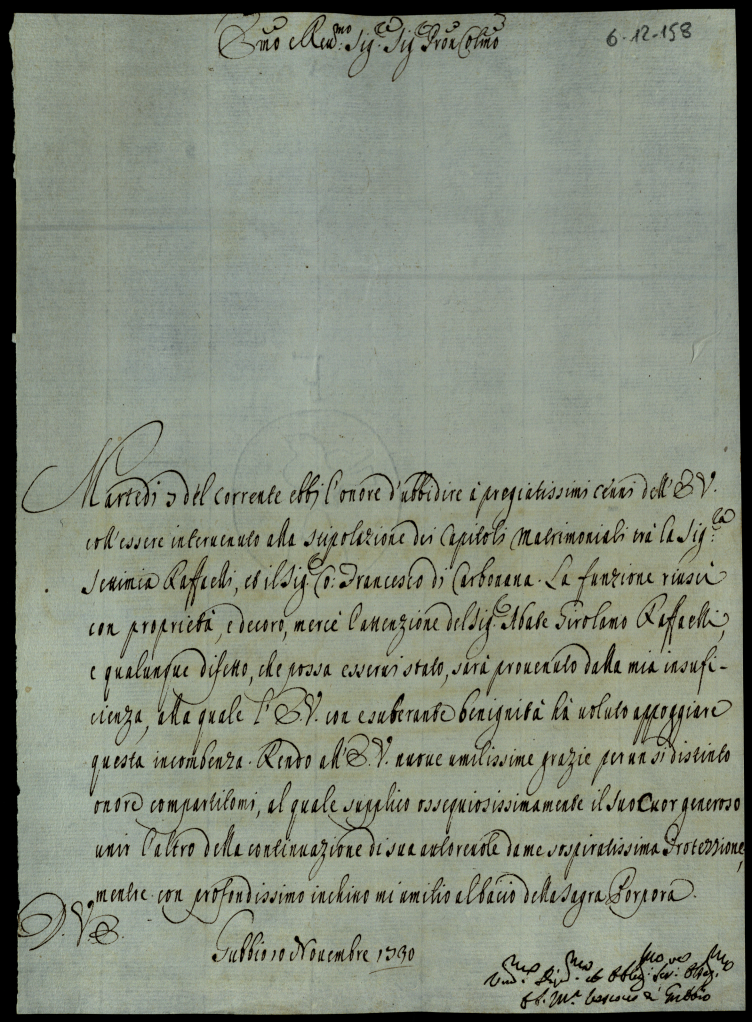 Em̃o e Rev.mo Sig.re Sig.re Pron Colmo
6-12-158
Martedi 7 del corrente ebbi l'onore d'ubbidire à pregiatissimi cenni dell'E.V.
coll'essere intervenuto alla stipolazione dei Capitoli Matrimoniali trà la Sig.ra
Raffaelli, ed il Sig.re Co: Francesco di Carbonana. La funzione riuscì
con proprietà, e decoro, mercè l'attenzione del Sig.re Abate Girolamo Raffaelli,
e qualunque difetto, che possa esservi stato, sarà provenuto dalla mia insufi-
cienza, alla quale l'E.V. con esuberante benignità hà voluto appoggiare
questa incombenza. Rendo all'E.V. nuove umilissime grazie per un sì distinto
onore compartitomi, al quale supplico ossequiosissimamente il suo Cuor generoso
unir l'altro della continuazione di sua autorevole da me sospiratissima Protezzione,
mentre con profondissimo inchino mi umilio al bacio della Sagra Porpora.
D. V. E.
Gubbio 10 Novembre 1730
Um.mo Dev.mo ed Obblig.mo Ser.
Vescovo di Gubbio